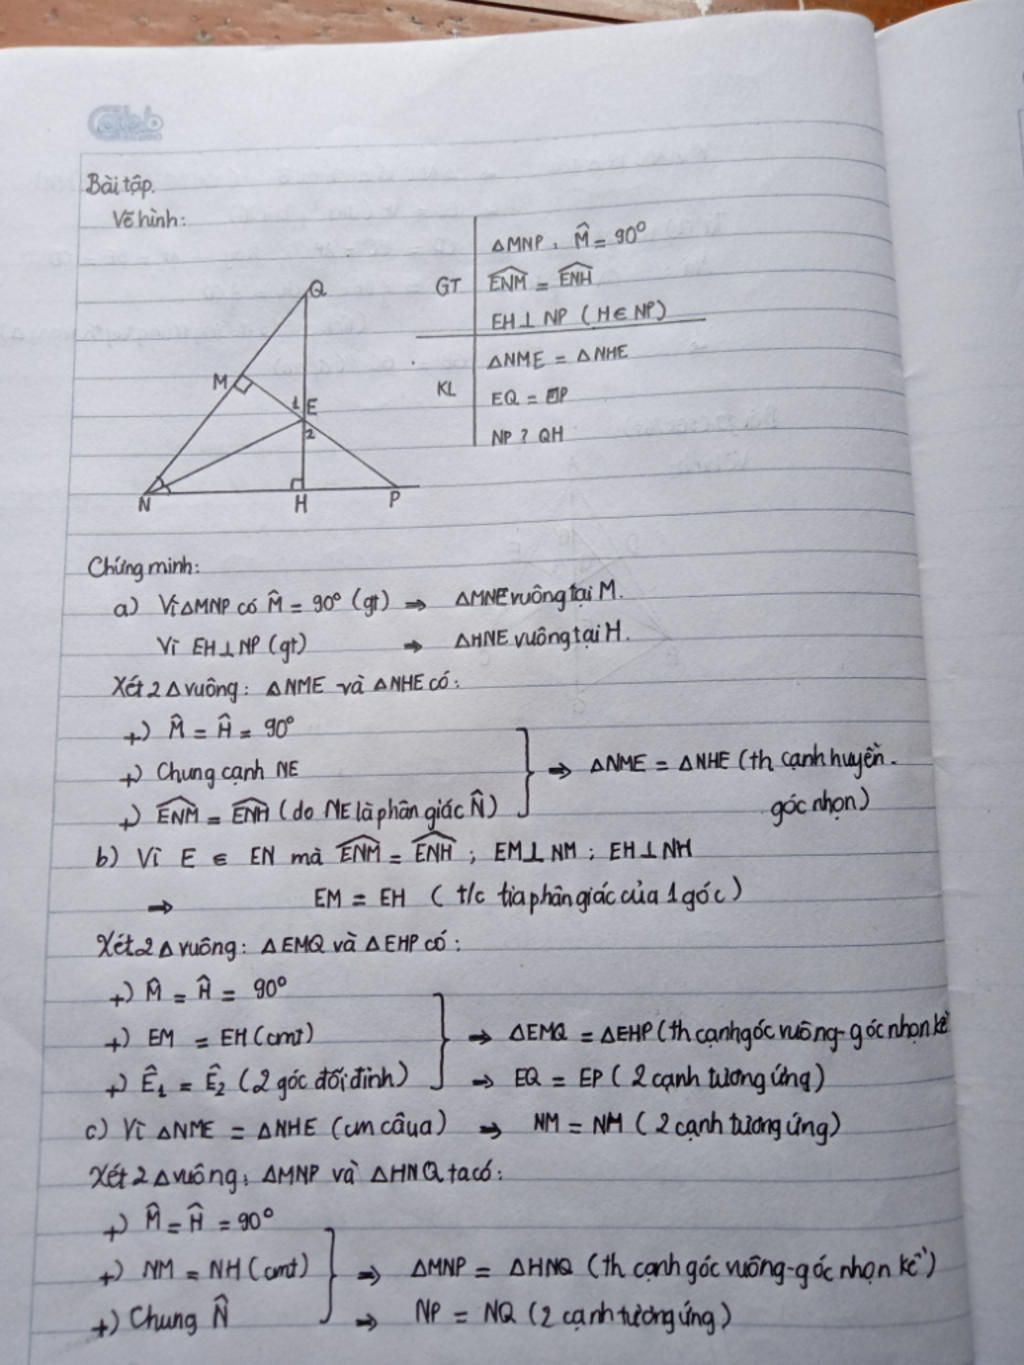 Bài tập.
Vẽ hình:
GT
ΔMNP, M̂ = 90°
ÊNM = ÊNH
EH ⊥ NP (H ∈ NP)
KL
ΔNME = ΔNHE
EQ = EP
NP ? QH
Q
M
1 E
2
N
H
P
Chứng minh:
a) Vì ΔMNP có M̂ = 90° (gt) ⇒ ΔMNE vuông tại M.
Vì EH ⊥ NP (gt) ⇒ ΔHNE vuông tại H.
Xét 2 Δ vuông: ΔNME và ΔNHE có:
+) M̂ = Ĥ = 90°
+) Chung cạnh NE
+) ÊNM = ÊNH (do NE là phân giác N̂)
⇒ ΔNME = ΔNHE (th cạnh huyền-
góc nhọn)
b) Vì E ∈ EN mà ÊNM = ÊNH ; EM ⊥ NM ; EH ⊥ NH
⇒ EM = EH ( t/c tia phân giác của 1 góc )
Xét 2 Δ vuông: ΔEMQ và ΔEHP có:
+) M̂ = Ĥ = 90°
+) EM = EH (cmt)
+) Ê1 = Ê2 (2 góc đối đỉnh)
⇒ ΔEMQ = ΔEHP (th cạnh góc vuông-góc nhọn kề
⇒ EQ = EP ( 2 cạnh tương ứng)
c) Vì ΔNME = ΔNHE (cm câu a) ⇒ NM = NM ( 2 cạnh tương ứng)
Xét 2 Δ vuông: ΔMNP và ΔHNQ ta có:
+) M̂ = Ĥ = 90°
+) NM = NH (cmt)
+) Chung N̂
⇒ ΔMNP = ΔHNQ (th cạnh góc vuông-góc nhọn kề)
⇒ NP = NQ (2 cạnh tương ứng)